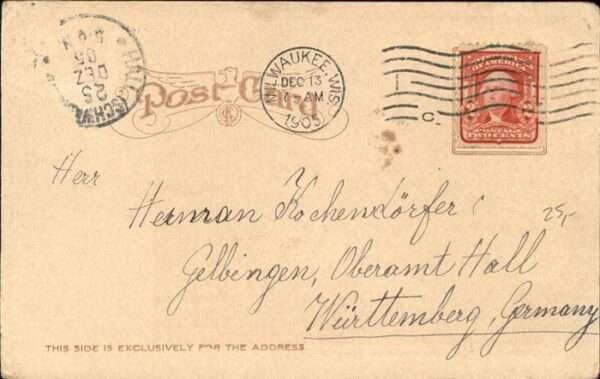 Post Card
MILWAUKEE, WIS.
DEC 13
AM
1905
C.
OF AMERICA
2 2
POSTAGE
TWO CENTS
23
DEZ
05
Herr
Herman Kochendörfer
25,-
Gelbingen, Oberamt Hall
Württemberg, Germany
THIS SIDE IS EXCLUSIVELY FOR THE ADDRESS.